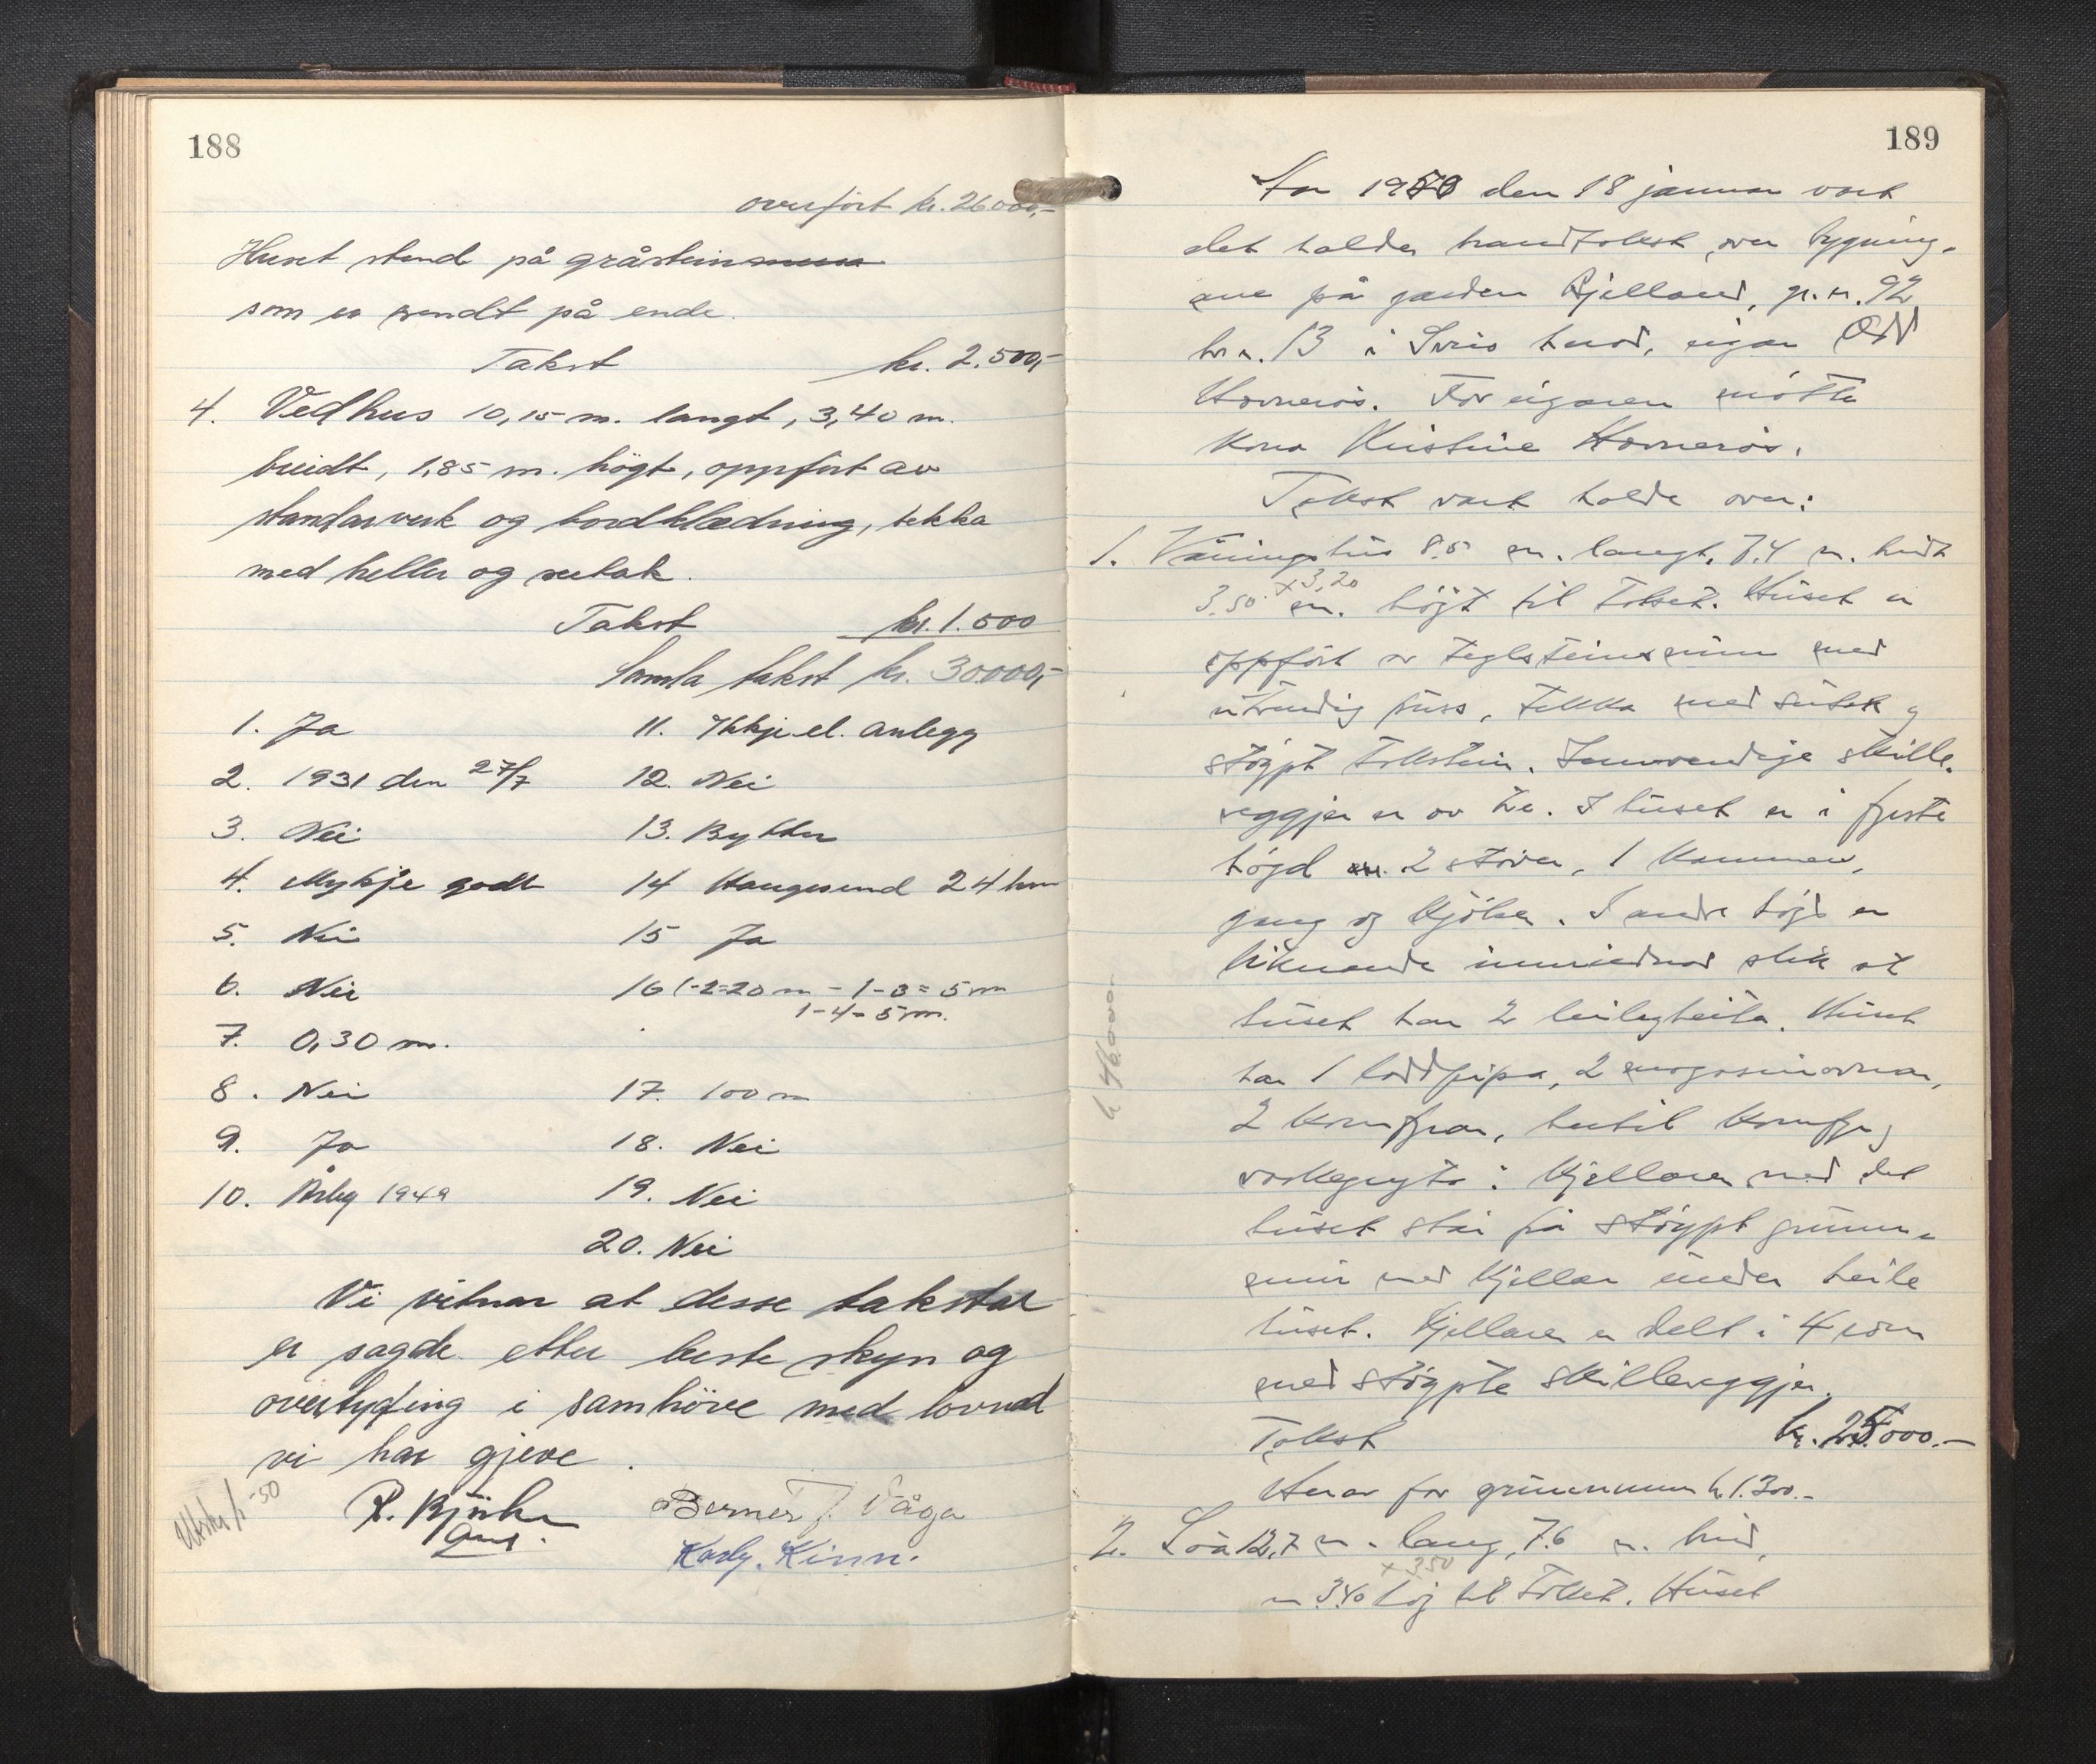 188
overført kr. 26000,-
Huset stend på gråstein
som er vendt på ende.
Takst kr. 2.500,-
4. Vedhus 10,15 m. langt, 3,40 m.
breidt, 1,85 m. högt, oppført av
standarverk og bordklædning, tekka
med heller og sutak.
Takst kr. 1.500
Samla takst kr. 30000,-
1. Ja
2. 1931 den 27/7
3. Nei
4. Mykje godt
5. Nei
6. Nei
7. 0,30 m.
8. Nei
9. Ja
10. Årleg 1949
11. Ikkje el. anlegg
12. Nei
13. Bytter
14 Haugesund 24 km
15 Ja
16 1-2=20 m - 1-3=5 m
1-4=5 m.
17. 100 m
18. Nei
19. Nei
20. Nei
Vi vitnar at desse takstar
er sagde etter beste skyn og
overtyding i samhöve med lovnad
vi har gjeve.
Utskr. 1/-50
R. Bjørke
Berner J. Våga
Karly. Kinn.
189
År 1950 den 18 januar vart
det halde brandtakst over bygning-
ane på garden Kjelland, gr. n. 92
br. n. 13 i Sveio herad, eigar Odd
Hovnerös. For eigaren møtte
kona Kristine Hovnerös.
Takst vart halde over:
1. Våningshus 8.5 m. langt, 7.4 m. breidt
x 3,20
3.50 m. högt til taket. Huset er
oppført av teglsteinsmur med
utvendig puss, tekka med sutak og
støypt takstein. Innvendige skille-
veggjer er av tre. I huset er i fyrste
högd 2 stover, 1 kammer,
gang og kjøken. I andre högd er
liknande innreidnad slik at
huset har 2 leilegheita. Huset
har 1 loddpipa, 2 magasinomnar,
2 komfyrar, hertil komfyr og
vaskegryta i kjellaren med det
huset står på støypt grunn-
mur med kjellar under heile
huset. Kjellaren er delt i 4 rom
med støypte skilleveggjer.
Takst kr. 25.000.-
Herav for grunnmuren kr. 1.300.-
kr 46.000.-
2. Löa 12,7 m. lang, 7.6 m. breid,
x 3,50
m 3.40 høg til taket. Huset